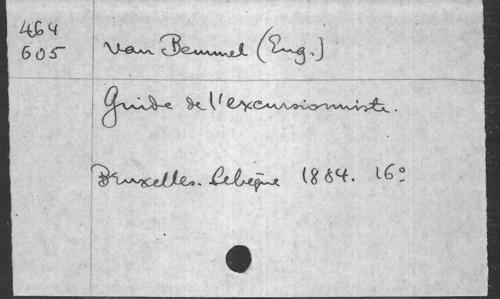 464
605
van Bemmel (Eug.)
Guide de l'excursionniste.
Bruxelles. Lebègue 1884. 16º